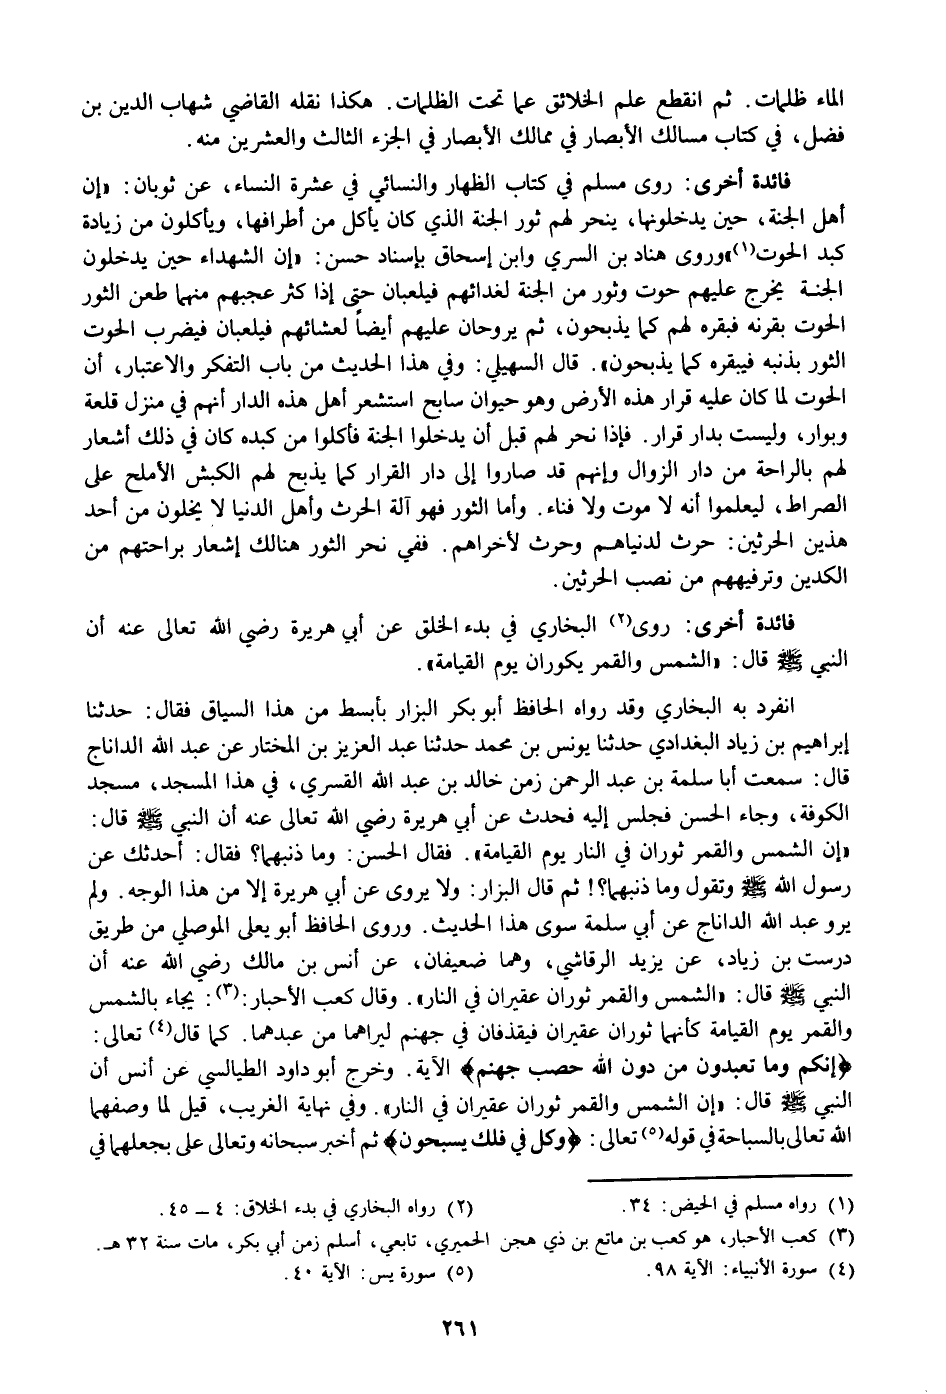 الماء ظلمات. ثم انقطع علم الخلائق عما تحت الظلمات. هكذا نقله القاضي شهاب الدين بن
فضل، في كتاب مسالك الأبصار في ممالك الأبصار في الجزء الثالث والعشرين منه.
فائدة أخرى: روى مسلم في كتاب الظهار والنسائي في عشرة النساء، عن ثوبان: «إن
أهل الجنة، حين يدخلونها، ينحر لهم ثور الجنة الذي كان يأكل من أطرافها، ويأكلون من زيادة
كبد الحوت(١)»وروى هناد بن السري وابن إسحاق بإسناد حسن: «إن الشهداء حين يدخلون
الجنة يخرج عليهم حوت وثور من الجنة لغدائهم فيلعبان حتى إذا كثر عجبهم منهما طعن الثور
الحوت بقرنه فبقره لهم كما يذبحون، ثم يروحان عليهم أيضاً لعشائهم فيلعبان فيضرب الحوت
الثور بذنبه فيبقره كما يذبحون». قال السهيلي: وفي هذا الحديث من باب التفكر والاعتبار، أن
الحوت لما كان عليه قرار هذه الأرض وهو حيوان سابح استشعر أهل هذه الدار أنهم في منزل قلعة
وبوار، وليست بدار قرار. فإذا نحر لهم قبل أن يدخلوا الجنة فأكلوا من كبده كان في ذلك أشعار
لهم بالراحة من دار الزوال وإنهم قد صاروا إلى دار القرار كما يذبح لهم الكبش الأملح على
الصراط، ليعلموا أنه لا موت ولا فناء. وأما الثور فهو آلة الحرث وأهل الدنيا لا يخلون من أحد
هذين الحرثين: حرث لدنياهم وحرث لأخراهم. ففي نحر الثور هنالك إشعار براحتهم من
الكدين وترفيههم من نصب الحرثين.
فائدة أخرى: روى(٢) البخاري في بدء الخلق عن أبي هريرة رضي الله تعالى عنه أن
النبي ﷺ قال: «الشمس والقمر يكوران يوم القيامة».
انفرد به البخاري وقد رواه الحافظ أبو بكر البزار بأبسط من هذا السياق فقال: حدثنا
إبراهيم بن زياد البغدادي حدثنا يونس بن محمد حدثنا عبد العزيز بن المختار عن عبد الله الداناج
قال: سمعت أبا سلمة بن عبد الرحمن زمن خالد بن عبد الله القسري، في هذا المسجد، مسجد
الكوفة، وجاء الحسن فجلس إليه فحدث عن أبي هريرة رضي الله تعالى عنه أن النبي ﷺ قال:
«إن الشمس والقمر ثوران في النار يوم القيامة». فقال الحسن: وما ذنبهما؟ فقال: أحدثك عن
رسول الله ﷺ وتقول وما ذنبهما؟! ثم قال البزار: ولا يروى عن أبي هريرة إلا من هذا الوجه. ولم
يرو عبد الله الداناج عن أبي سلمة سوى هذا الحديث. وروى الحافظ أبو يعلى الموصلي من طريق
درست بن زياد، عن يزيد الرقاشي، وهما ضعيفان، عن أنس بن مالك رضي الله عنه أن
النبي ﷺ قال: «الشمس والقمر ثوران عقيران في النار». وقال كعب الأحبار:(٣): يجاء بالشمس
والقمر يوم القيامة كأنهما ثوران عقيران فيقذفان في جهنم ليراهما من عبدهما. كما قال(٤) تعالى:
﴿إنكم وما تعبدون من دون الله حصب جهنم﴾ الآية. وخرج أبو داود الطيالسي عن أنس أن
النبي ﷺ قال: «إن الشمس والقمر ثوران عقيران في النار». وفي نهاية الغريب، قيل لما وصفهما
الله تعالى بالسباحة في قوله(٥) تعالى: ﴿وكل في فلك يسبحون﴾ ثم أخبر سبحانه وتعالى على بجعلهما في
(١) رواه مسلم في الحيض: ٣٤. (٢) رواه البخاري في بدء الخلاق: ٤ ــ ٤٥.
(٣) كعب الأحبار، هو كعب بن ماتع بن ذي هجن الحميري، تابعي، أسلم زمن أبي بكر، مات سنة ٣٢ هـ.
(٤) سورة الأنبياء: الآية ٩٨. (٥) سورة يس: الآية ٤٠.
٢٦١